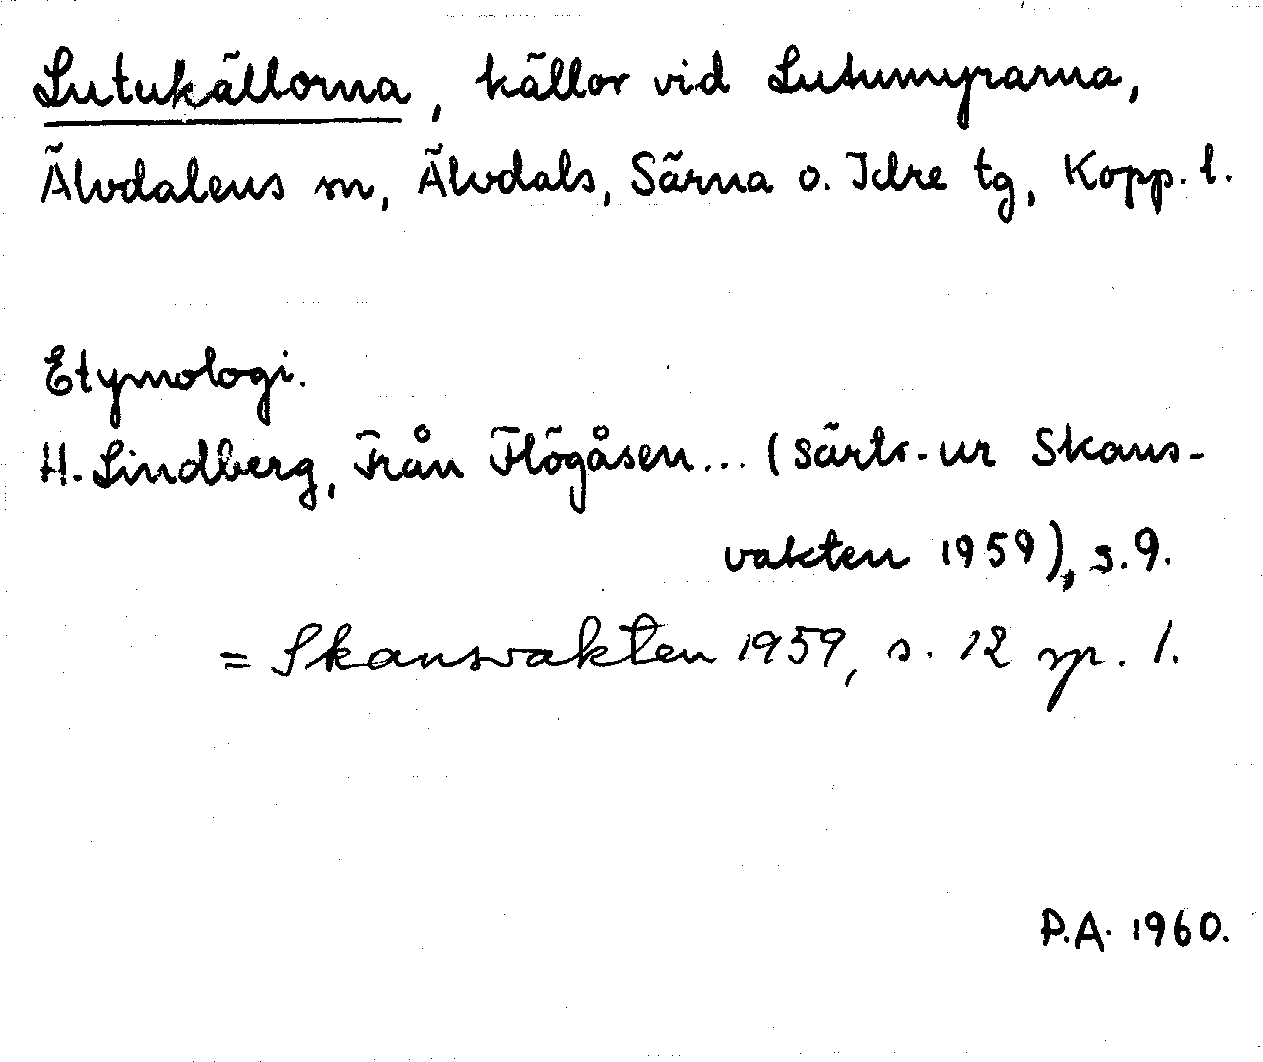 Lutukällorna, källor vid Lutumyrarna,
Älvdalens sn, Älvdals, Särna o. Idre tg, Kopp. l.
Etymologi.
H. Lindberg, Från Flögåsen... (särtr. ur Skans-
vakten 1959), s. 9.
= Skansvakten 1959, s. 12 sp. 1.
P.A. 1960.